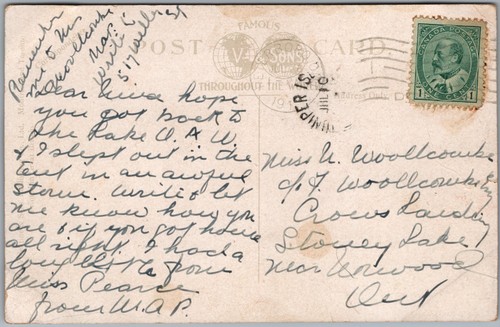 Remember
me to Mrs
Woollcombe
Mar
Write to
517
FAMOUS
POST CARD
V & SONS
THROUGHOUT THE WORLD
19
JUNIPER IS
CANADA POSTAGE
1 1
Dear Nina hope
you got back to
the Lake O.K. W
& I slept out in the
tent in an awful
storm. Write & let
me know how you
are & if you got home
all right. I had a
long letter from
Miss Pearce
from W.A.P.
Miss N. Woollcombe
c/o F. Woollcombe
Crowes Landing
Stoney Lake
near Norwood
Ont